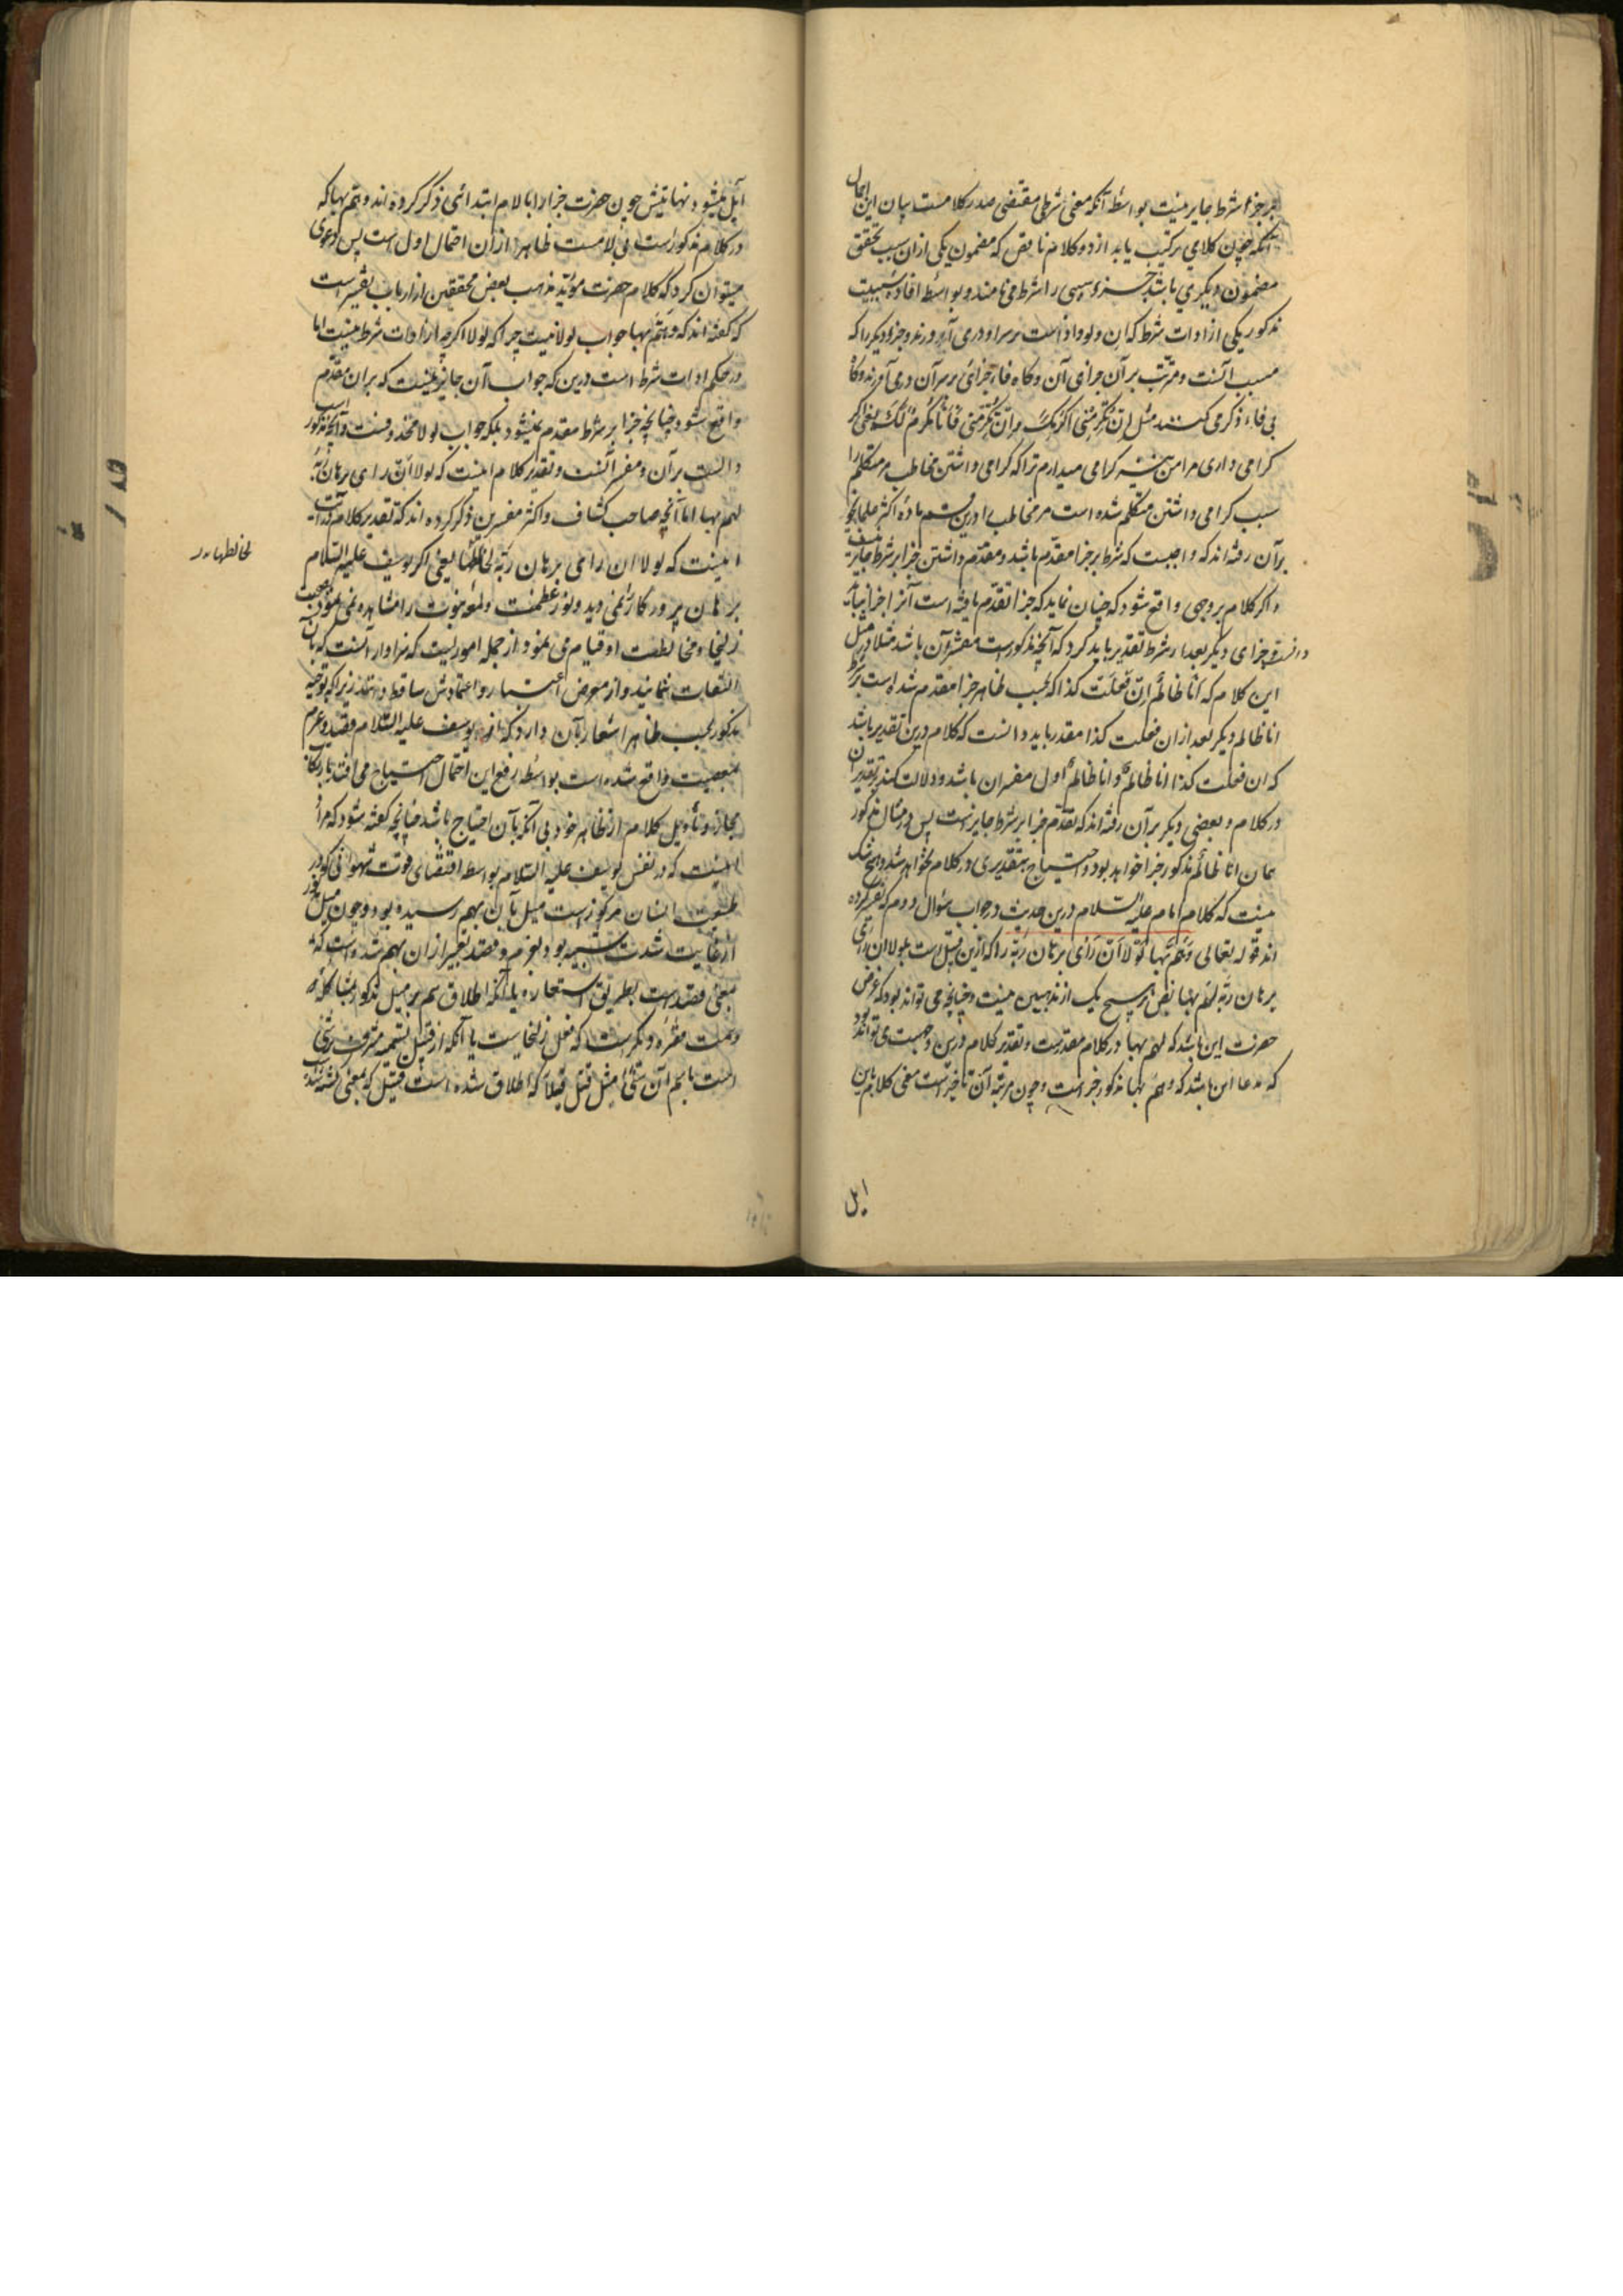 بر جزا شرط جایز نیست بواسطه آنکه معنی شرطی مقتضی صدر کلامست بیان این اجمال
آنکه چون کلامی ترکیب یابد از دو کلام ناقص که مضمون یکی ازان سبب تحقق
مضمون دیگری باشد جزو سببی را شرط می نامند و بواسطه افاده سببیت
مذکور یکی از ادات شرط که ان و لو و اذا است بر سر او در می آورند و جزء دیگر را که
مسبب آنست و مترتب بر آن جزای آن و گاه فاء جزائی بر سر آن در می آورند و گاه
بی فاء ذکر می کنند مثل اِن تُکرِمنی اُکرِمکَ و اِن تُکرِمنی فَاَنَا مُکرِمٌ لَکَ یعنی اگر
گرامی داری مرا من نیز گرامی میدارم ترا که گرامی داشتن مخاطب مر متکلم را
سبب گرامی داشتن متکلم شده است مر مخاطب را و درین ماده اکثر علما نحو
برآن رفته اند که واجبست که شرط بر جزا مقدم باشد و مقدم داشتن جزا بر شرط جایز نیست
و اگر کلام بروجهی واقع شود که چنان نماید که جزا تقدم یافته است آنرا جزا نباید
دانست و جزای دیگر بعد از شرط تقدیر باید کرد که آنچه مذکورست مفسر آن باشد مثلا در مثل
این کلام که اَنَا ظالمٌ اِن فَعَلتَ کذا که بحسب ظاهر جزا مقدم شده است بر شرط
انا ظالم دیگر بعد ازان فعلت کذا مقدر باید دانست که کلام درین تقدیر باشد
که ان فعلت کذا انا ظالمٌ و انا ظالمٌ اول مفسر ان باشد و دلالت کند بر تقدیر آن
در کلام و بعضی دیگر بر آن رفته اند که تقدم جزا بر شرط جایز است پس در مثال مذکور
همان انا ظالم مذکور جزا خواهد بود و احتیاج بتقدیری در کلام نخواهد شد و هیچ شک
نیست که کلام امام علیه السلام درین حدیث در جواب سؤال دوم که تفسیر کرده
اند قوله تعالی وَهَمَّ بِها لَولا اَن رَای بُرهان رَبِّه را که ازین قبیل است بلولا ان رای
برهان ربه لهم بها نص در هیچ یک از مذهبین نیست چنانچه می تواند بود که غرض
حضرت این باشد که لهم بها در کلام مقدرست و تقدیر کلام درین وجهست می تواند بود
که مدعا این باشد که و هم بها مذکور جزاست و چون مرتبه آن تاخیرست معنی کلام باین
آیل
آیل میشود نهایتش چون حضرت جزا را با لام ابتدائی ذکر کرده اند و هم بها که
در کلام مذکورست بی لامست ظاهرا ازان احتمال اول است پس دعوی
میتوان کرد که کلام حضرت مؤید مذهب بعض محققین از ارباب تفسیر است
که گفته اند که وَهَمَّ بها جواب لولا نیست چرا که لولا اگرچه از ادات شرط نیست اما
در حکم ادات شرط است درین که جواب آن جایز نیست که بران مقدم
واقع شود چنانچه جزا بر شرط مقدم نمیشود بلکه جواب لولا محذوفست و آنچه مذکور است
دالست بر آن و مفسر آنست و تقدیر کلام اینست که لولا اَن رای برهان رَبِّه
لهم بها اما آنچه صاحب کشاف و اکثر مفسرین ذکر کرده اند که تقدیر کلام در آیت
اینست که لولا ان رای برهان ربّه لخالطها یعنی اگر یوسف علیه السلام
برهان پروردگار نمی دید و نور عظمت و لمعه نبوت را مشاهده نمی نمود بصحبت
زلیخا و مخالطت او قیام می نمود از جمله اموریست که سزاوار آنست که بآن
التفات ننمایند و از معرض اعتبار و اعتمادش ساقط دانند زیرا که توجیه
مذکور بحسب ظاهر اشعار بآن دارد که از یوسف علیه السلام قصد و عزم
بمعصیت واقع شده است بواسطه رفع این احتمال احتیاج می افتد بارتکاب
مجاز و تأویل کلام از ظاهر خود بی آنکه بآن احتیاج باشد چنانچه گفته شود که مراد
اینست که در نفس یوسف علیه السلام بواسطه اقتضای قوت شهوانی که در
طبیعت انسان مرکوز است میل بآن بهم رسیده بود و چون میل مذکور
از غایت شدت شبیه بود بعزم و قصد تعبیر ازان بهم شده است که
بمعنی قصد است بطریق استعاره یا آنکه اطلاق هم بر میل مذکور بمشاکله
و همت مقرره دیگرست که فعل زلیخاست یا آنکه از قبیل تسمیه مشرف بر شئ
است باسم آن شئ مثل قتل قتیلا که اطلاق شده است قتیل که بمعنی کشته شده است
لخالطها بدر